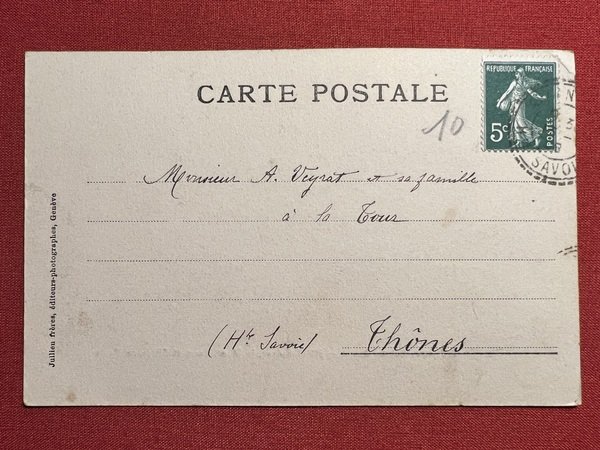 CARTE POSTALE
10
REPUBLIQUE FRANÇAISE
5c
POSTES
SAVOI
Monsieur A. Veyrat et sa famille
à la Tour
(Hte Savoie) Thônes
Jullien frères, éditeurs-photographes, Genève